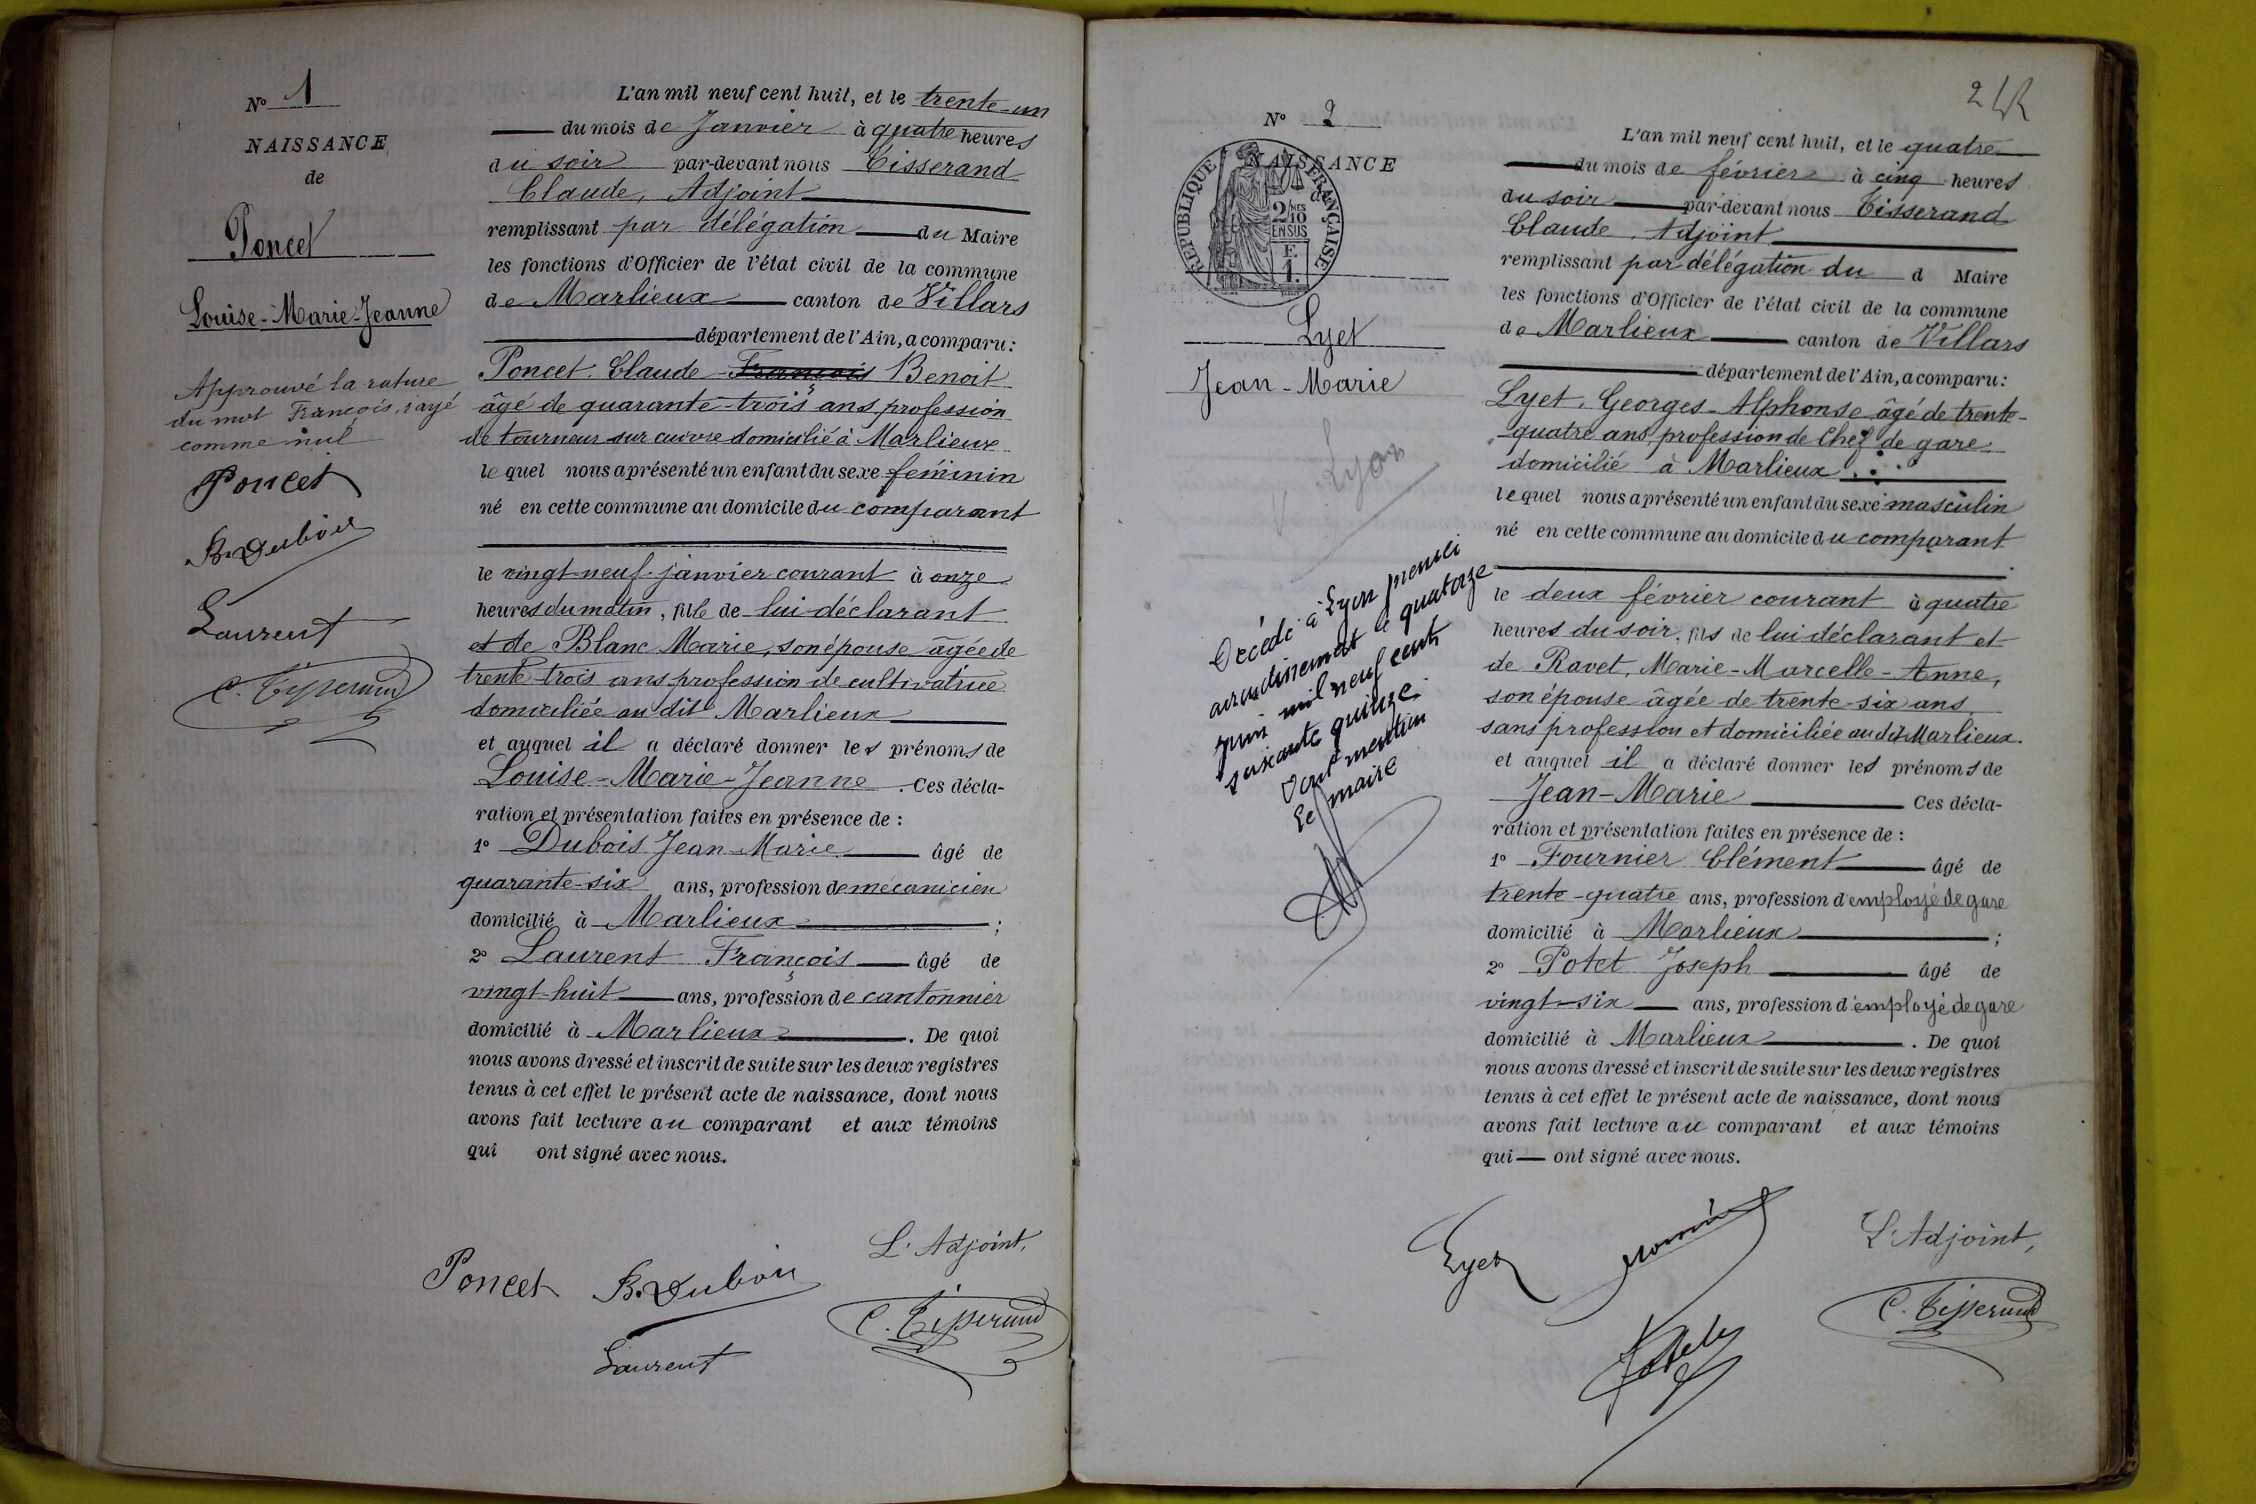 N° 1
NAISSANCE
de
Poncet
Louise-Marie-Jeanne
Approuvé la rature
du mot François, rayé
comme nul
Poncet
B. Dubois
Laurent
C. Tisserand
L'an mil neuf cent huit, et le trente-un
du mois de Janvier à quatre heures
du soir par-devant nous Tisserand
Claude, Adjoint
remplissant par délégation du Maire
les fonctions d'Officier de l'état civil de la commune
de Marlieux canton de Villars
département de l'Ain, a comparu:
Poncet Claude François Benoit
âgé de quarante-trois ans profession
de tourneur sur cuivre domicilié à Marlieux
lequel nous a présenté un enfant du sexe féminin
né en cette commune au domicile du comparant
le vingt-neuf janvier courant à onze
heures du matin, fille de lui déclarant
et de Blanc Marie, son épouse âgée de
trente trois ans profession de cultivatrice
domiciliée au dit Marlieux
et auquel il a déclaré donner les prénoms de
Louise-Marie-Jeanne. Ces décla-
ration et présentation faites en présence de :
1° Dubois Jean-Marie âgé de
quarante-six ans, profession de mécanicien
domicilié à Marlieux ;
2° Laurent François âgé de
vingt-huit ans, profession de cantonnier
domicilié à Marlieux. De quoi
nous avons dressé et inscrit de suite sur les deux registres
tenus à cet effet le présent acte de naissance, dont nous
avons fait lecture au comparant et aux témoins
qui ont signé avec nous.
L'Adjoint,
Poncet B. Dubois
C. Tisserand
Laurent
242
N° 2
NAISSANCE
de
RÉPUBLIQUE FRANÇAISE
2/10 MES
EN SUS
F.
1.
Lyet
Jean-Marie
V. Lyon
Décédé à Lyon premier
arrondissement le quatorze
juin mil neuf cent
soixante quinze.
Dont mention
Le maire
L'an mil neuf cent huit, et le quatre
du mois de février à cinq heures
du soir par-devant nous Tisserand
Claude, Adjoint
remplissant par délégation du d Maire
les fonctions d'Officier de l'état civil de la commune
de Marlieux canton de Villars
département de l'Ain, a comparu:
Lyet, Georges-Alphonse âgé de trente-
quatre ans, profession de Chef de gare
domicilié à Marlieux
lequel nous a présenté un enfant du sexe masculin
né en cette commune au domicile du comparant
le deux février courant à quatre
heures du soir, fils de lui déclarant et
de Ravet, Marie-Marcelle-Anne,
son épouse âgée de trente-six ans,
sans profession et domiciliée au dit Marlieux.
et auquel il a déclaré donner les prénoms de
Jean-Marie Ces décla-
ration et présentation faites en présence de :
1° Fournier Clément âgé de
trente-quatre ans, profession d'employé de gare
domicilié à Marlieux ;
2° Potet Joseph âgé de
vingt-six ans, profession d'employé de gare
domicilié à Marlieux. De quoi
nous avons dressé et inscrit de suite sur les deux registres
tenus à cet effet le présent acte de naissance, dont nous
avons fait lecture au comparant et aux témoins
qui ont signé avec nous.
L'Adjoint,
Lyet
C. Tisserand